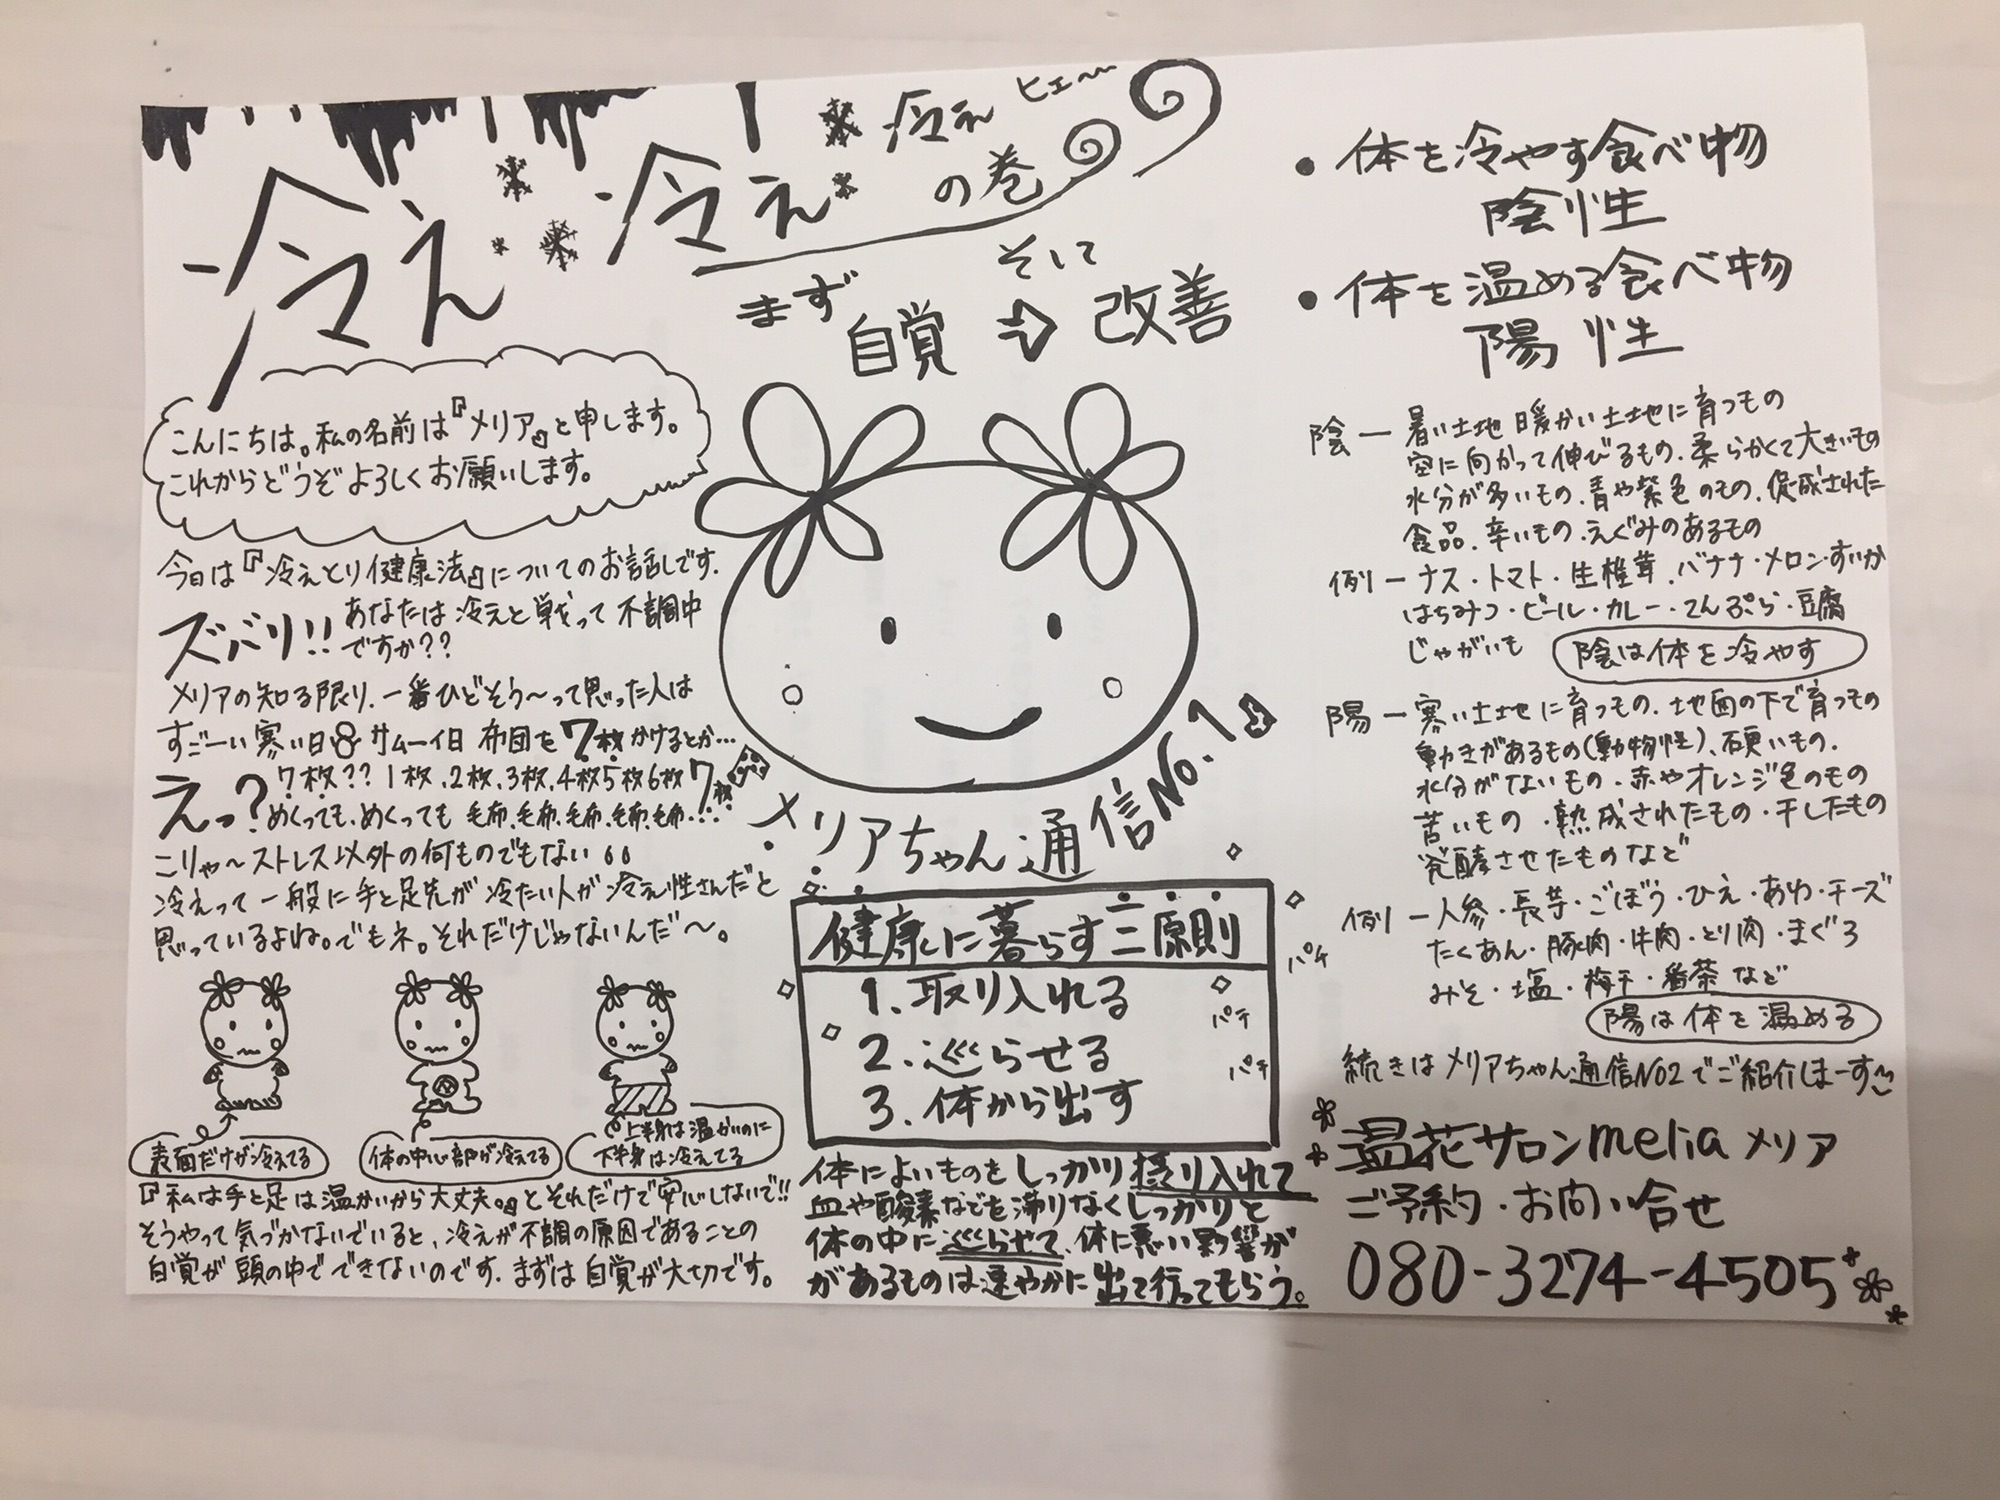 冷え 冷え 冷え ヒエ〜
の巻
まず 自覚 そして ⇨ 改善
こんにちは。私の名前は『メリア』と申します。
これからどうぞよろしくお願いします。
今日は『冷えとり健康法』についてのお話しです.
ズバリ!! あなたは冷えと戦って不調中
ですか??
メリアの知る限り、一番ひどそう〜って思った人は
すごーい寒い日&サムーイ日 布団を7枚かけるとか…
えっ? 7枚?? 1枚、2枚、3枚、4枚5枚6枚7枚
めくっても、めくっても 毛布、毛布、毛布、毛布、毛布・!!
こりゃ〜ストレス以外の何ものでもない
冷えって一般に手と足先が冷たい人が冷え性さんだと
思っているよね。でもネ。それだけじゃないんだ〜。
表面だけが冷えてる
体の中心部が冷えてる
上半身は温かいのに
下半身は冷えてる
『私は手と足は温かいから大丈夫。』とそれだけで安心しないで!!
そうやって気づかないでいると、冷えが不調の原因であることの
自覚が頭の中でできないのです。まずは自覚が大切です。
メリアちゃん通信No.1♪
健康に暮らす三原則
1.取り入れる
2.巡らせる
3.体から出す
パチ
パチ
パチ
体によいものをしっかり摂り入れて
血や酸素などを滞りなくしっかりと
体の中に巡らせて、体に悪い影響が
があるものは速やかに出て行ってもらう。
・体を冷やす食べ物
陰性
・体を温める食べ物
陽性
陰ー暑い土地 暖かい土地に育つもの
空に向かって伸びるもの、柔らかくて大きいもの
水分が多いもの、青や紫色のもの、促成された
食品、辛いもの、えぐみのあるもの
例ーナス・トマト・生椎茸、バナナ・メロン・すいか
はちみつ・ビール・カレー・てんぷら・豆腐
じゃがいも 陰は体を冷やす
陽ー寒い土地に育つもの、地面の下で育つもの
動きがあるもの(動物性)、硬いもの、
水分がないもの・赤やオレンジ色のもの
苦いもの・熟成されたもの・干したもの
発酵させたものなど
例ー人参・長芋・ごぼう・ひえ・あわ・チーズ
たくあん・豚肉・牛肉・とり肉・まぐろ
みそ・塩・梅干・番茶など
陽は体を温める
続きはメリアちゃん通信No2でご紹介しまーす
温花サロンmelia メリア
ご予約・お問い合せ
080-3274-4505